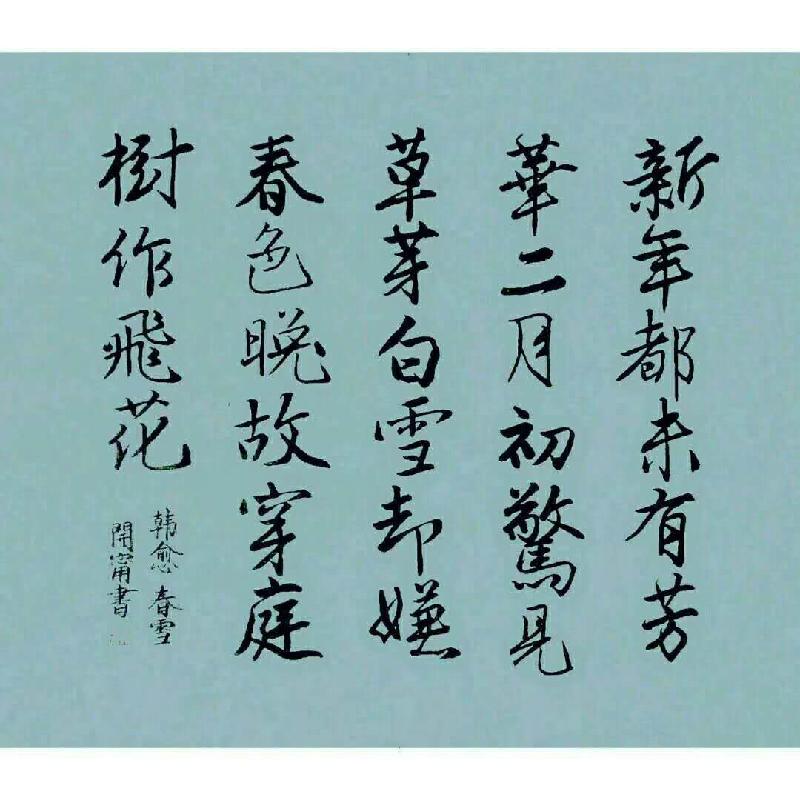 新年都未有芳
華二月初驚見
草芽白雪却嫌
春色晚故穿庭
樹作飛花
韩愈 春雪
開甯書